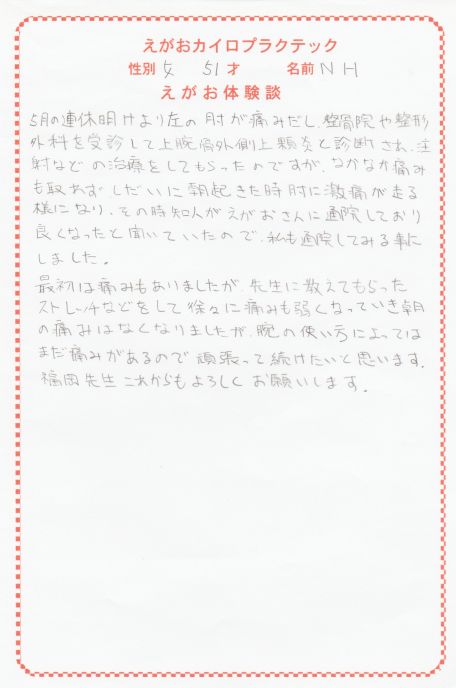 えがおカイロプラクテック
性別 女 51才 名前 NH
えがお体験談
5月の連休明けより左の肘が痛みだし、整骨院や整形
外科を受診して上腕骨外側上顆炎と診断され、注
射などの治療をしてもらったのですが、なかなか痛み
も取れずしだいに朝起きた時肘に激痛が走る
様になり、その時知人がえがおさんに通院しており
良くなったと聞いていたので、私も通院してみる事に
しました。
最初は痛みもありましたが、先生に教えてもらった
ストレッチなどをして徐々に痛みも弱くなっていき朝
の痛みはなくなりましたが、腕の使い方によっては
まだ痛みがあるので頑張って続けたいと思います。
福岡先生これからもよろしくお願いします。